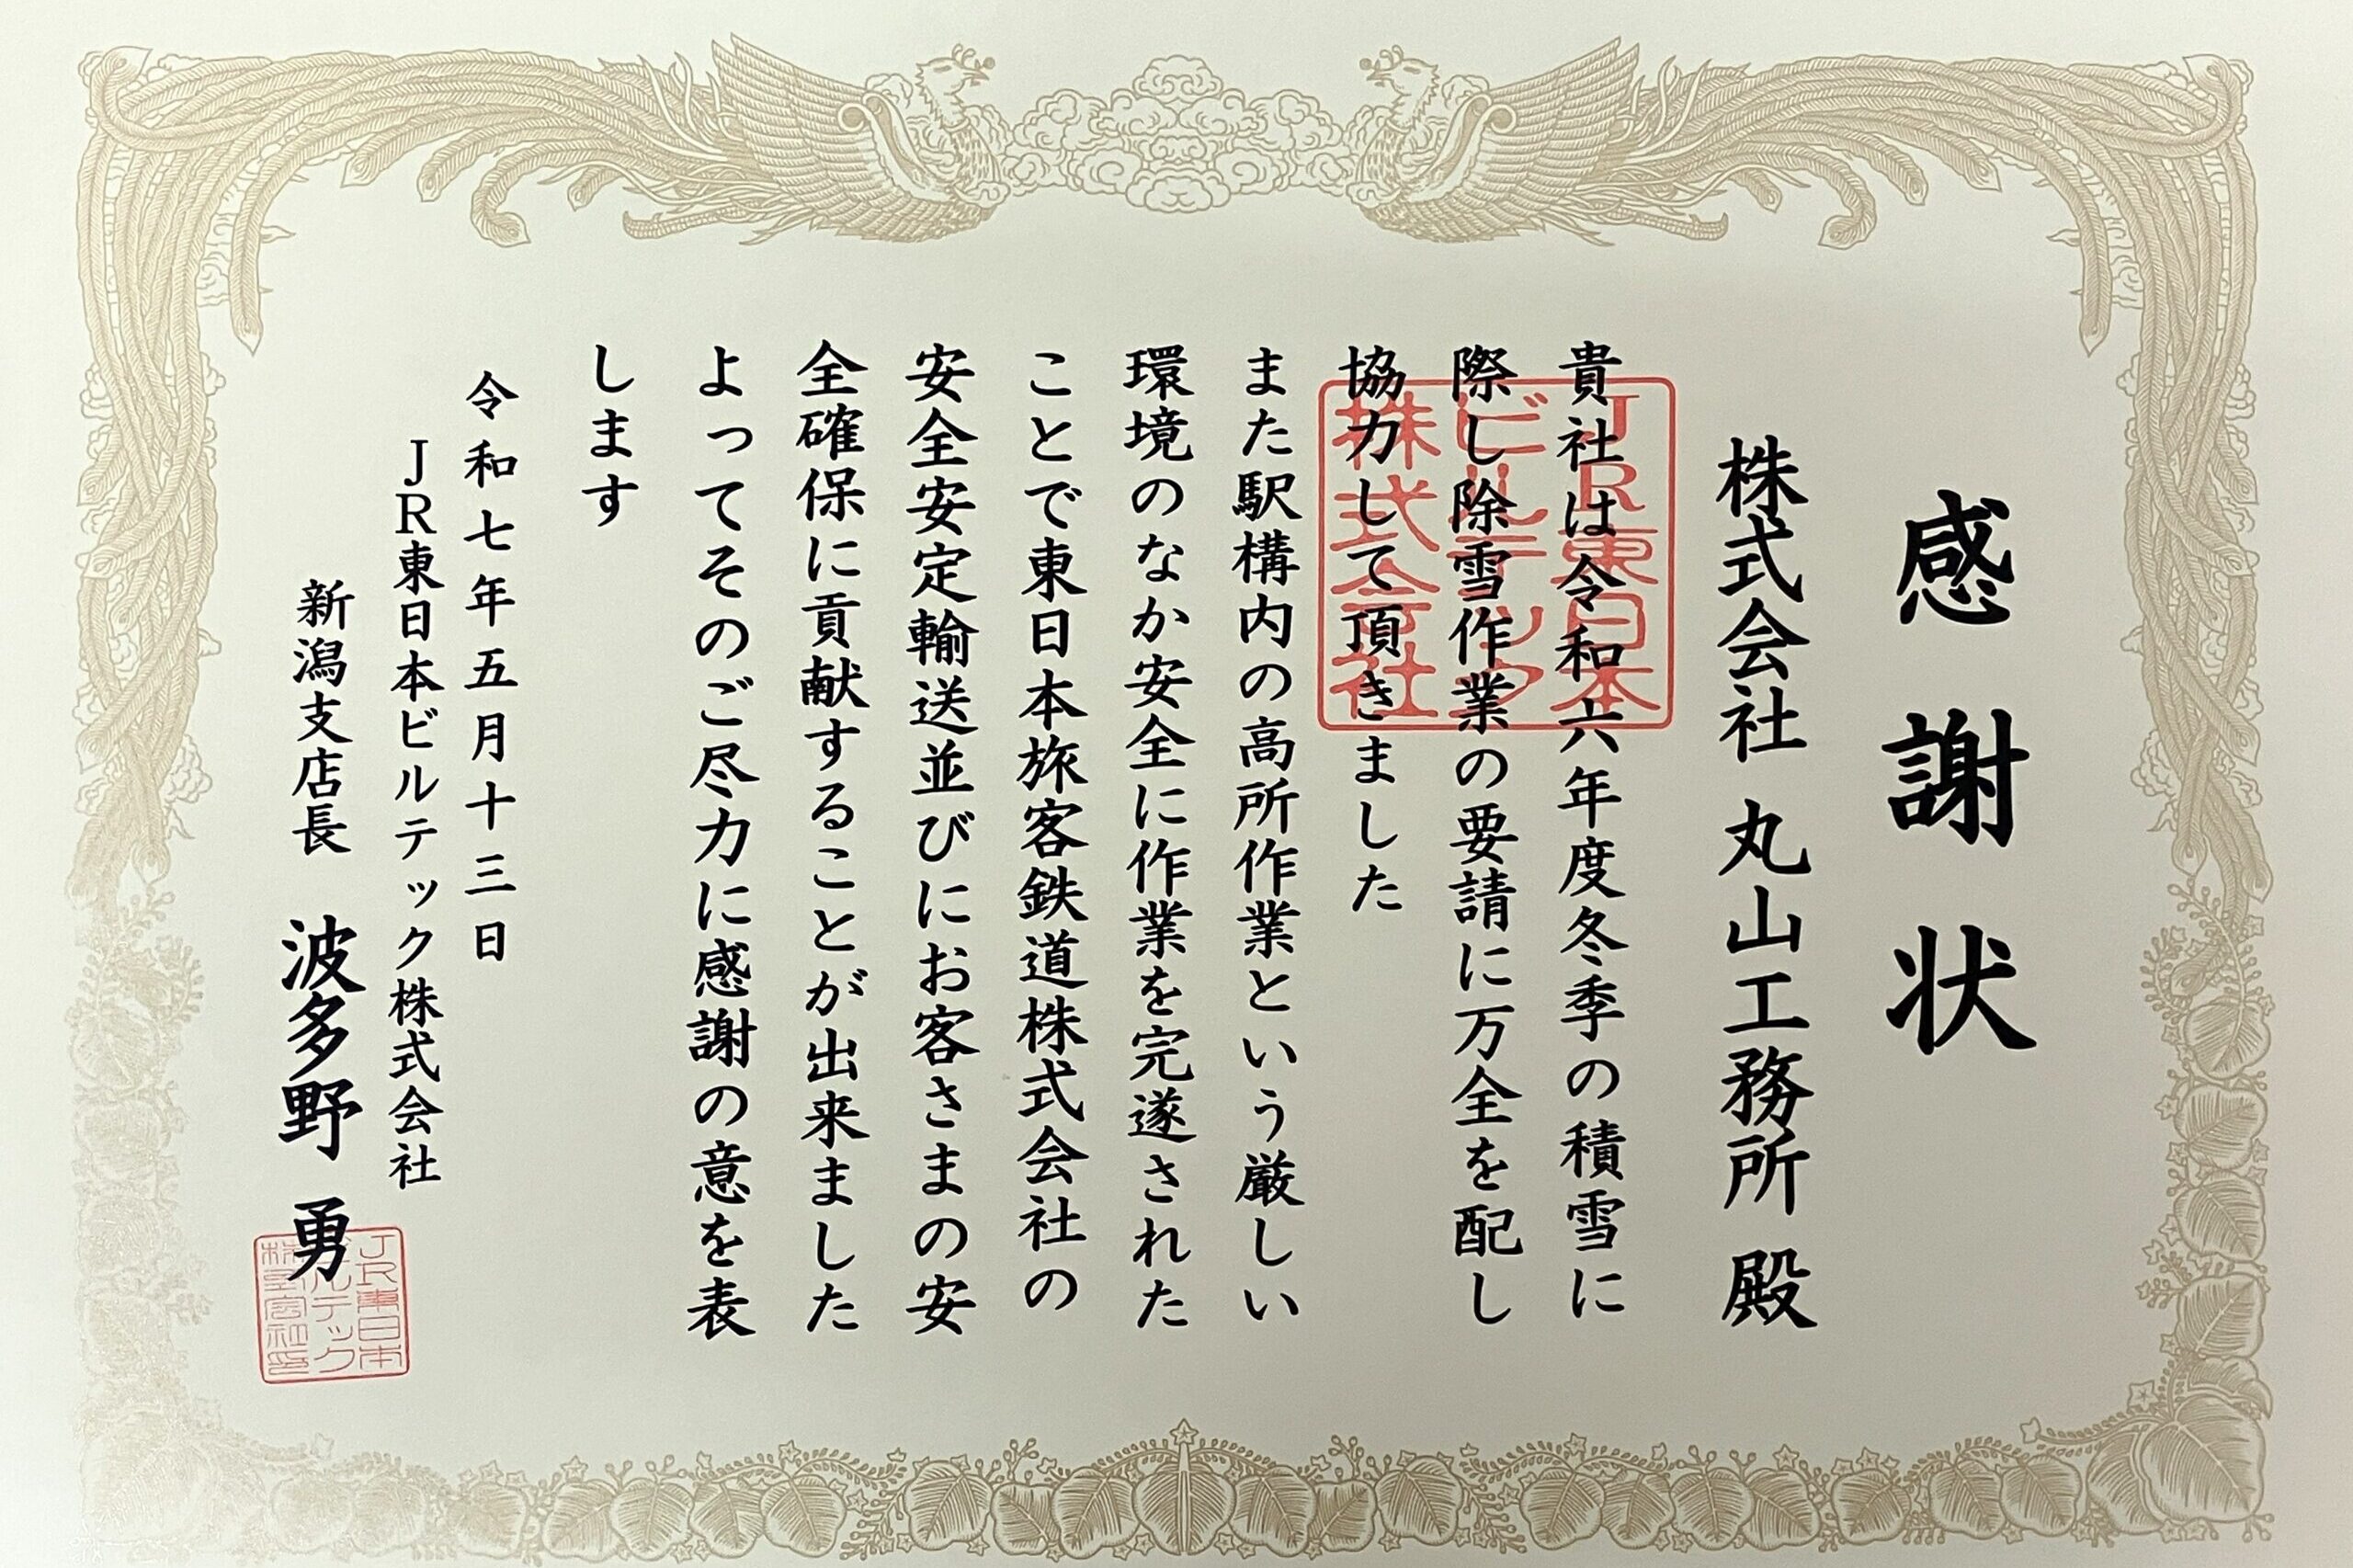 感謝状
株式会社 丸山工務所 殿
貴社は令和六年度冬季の積雪に
際し除雪作業の要請に万全を配し
協力して頂きました
また駅構内の高所作業という厳しい
環境のなか安全に作業を完遂された
ことで東日本旅客鉄道株式会社の
安全安定輸送並びにお客さまの安
全確保に貢献することが出来ました
よってそのご尽力に感謝の意を表
します
令和七年五月十三日
JR東日本ビルテック株式会社
新潟支店長 波多野 勇
JR東日本
ビルテック
株式会社
JR東日本
ビルテック
株式会社印